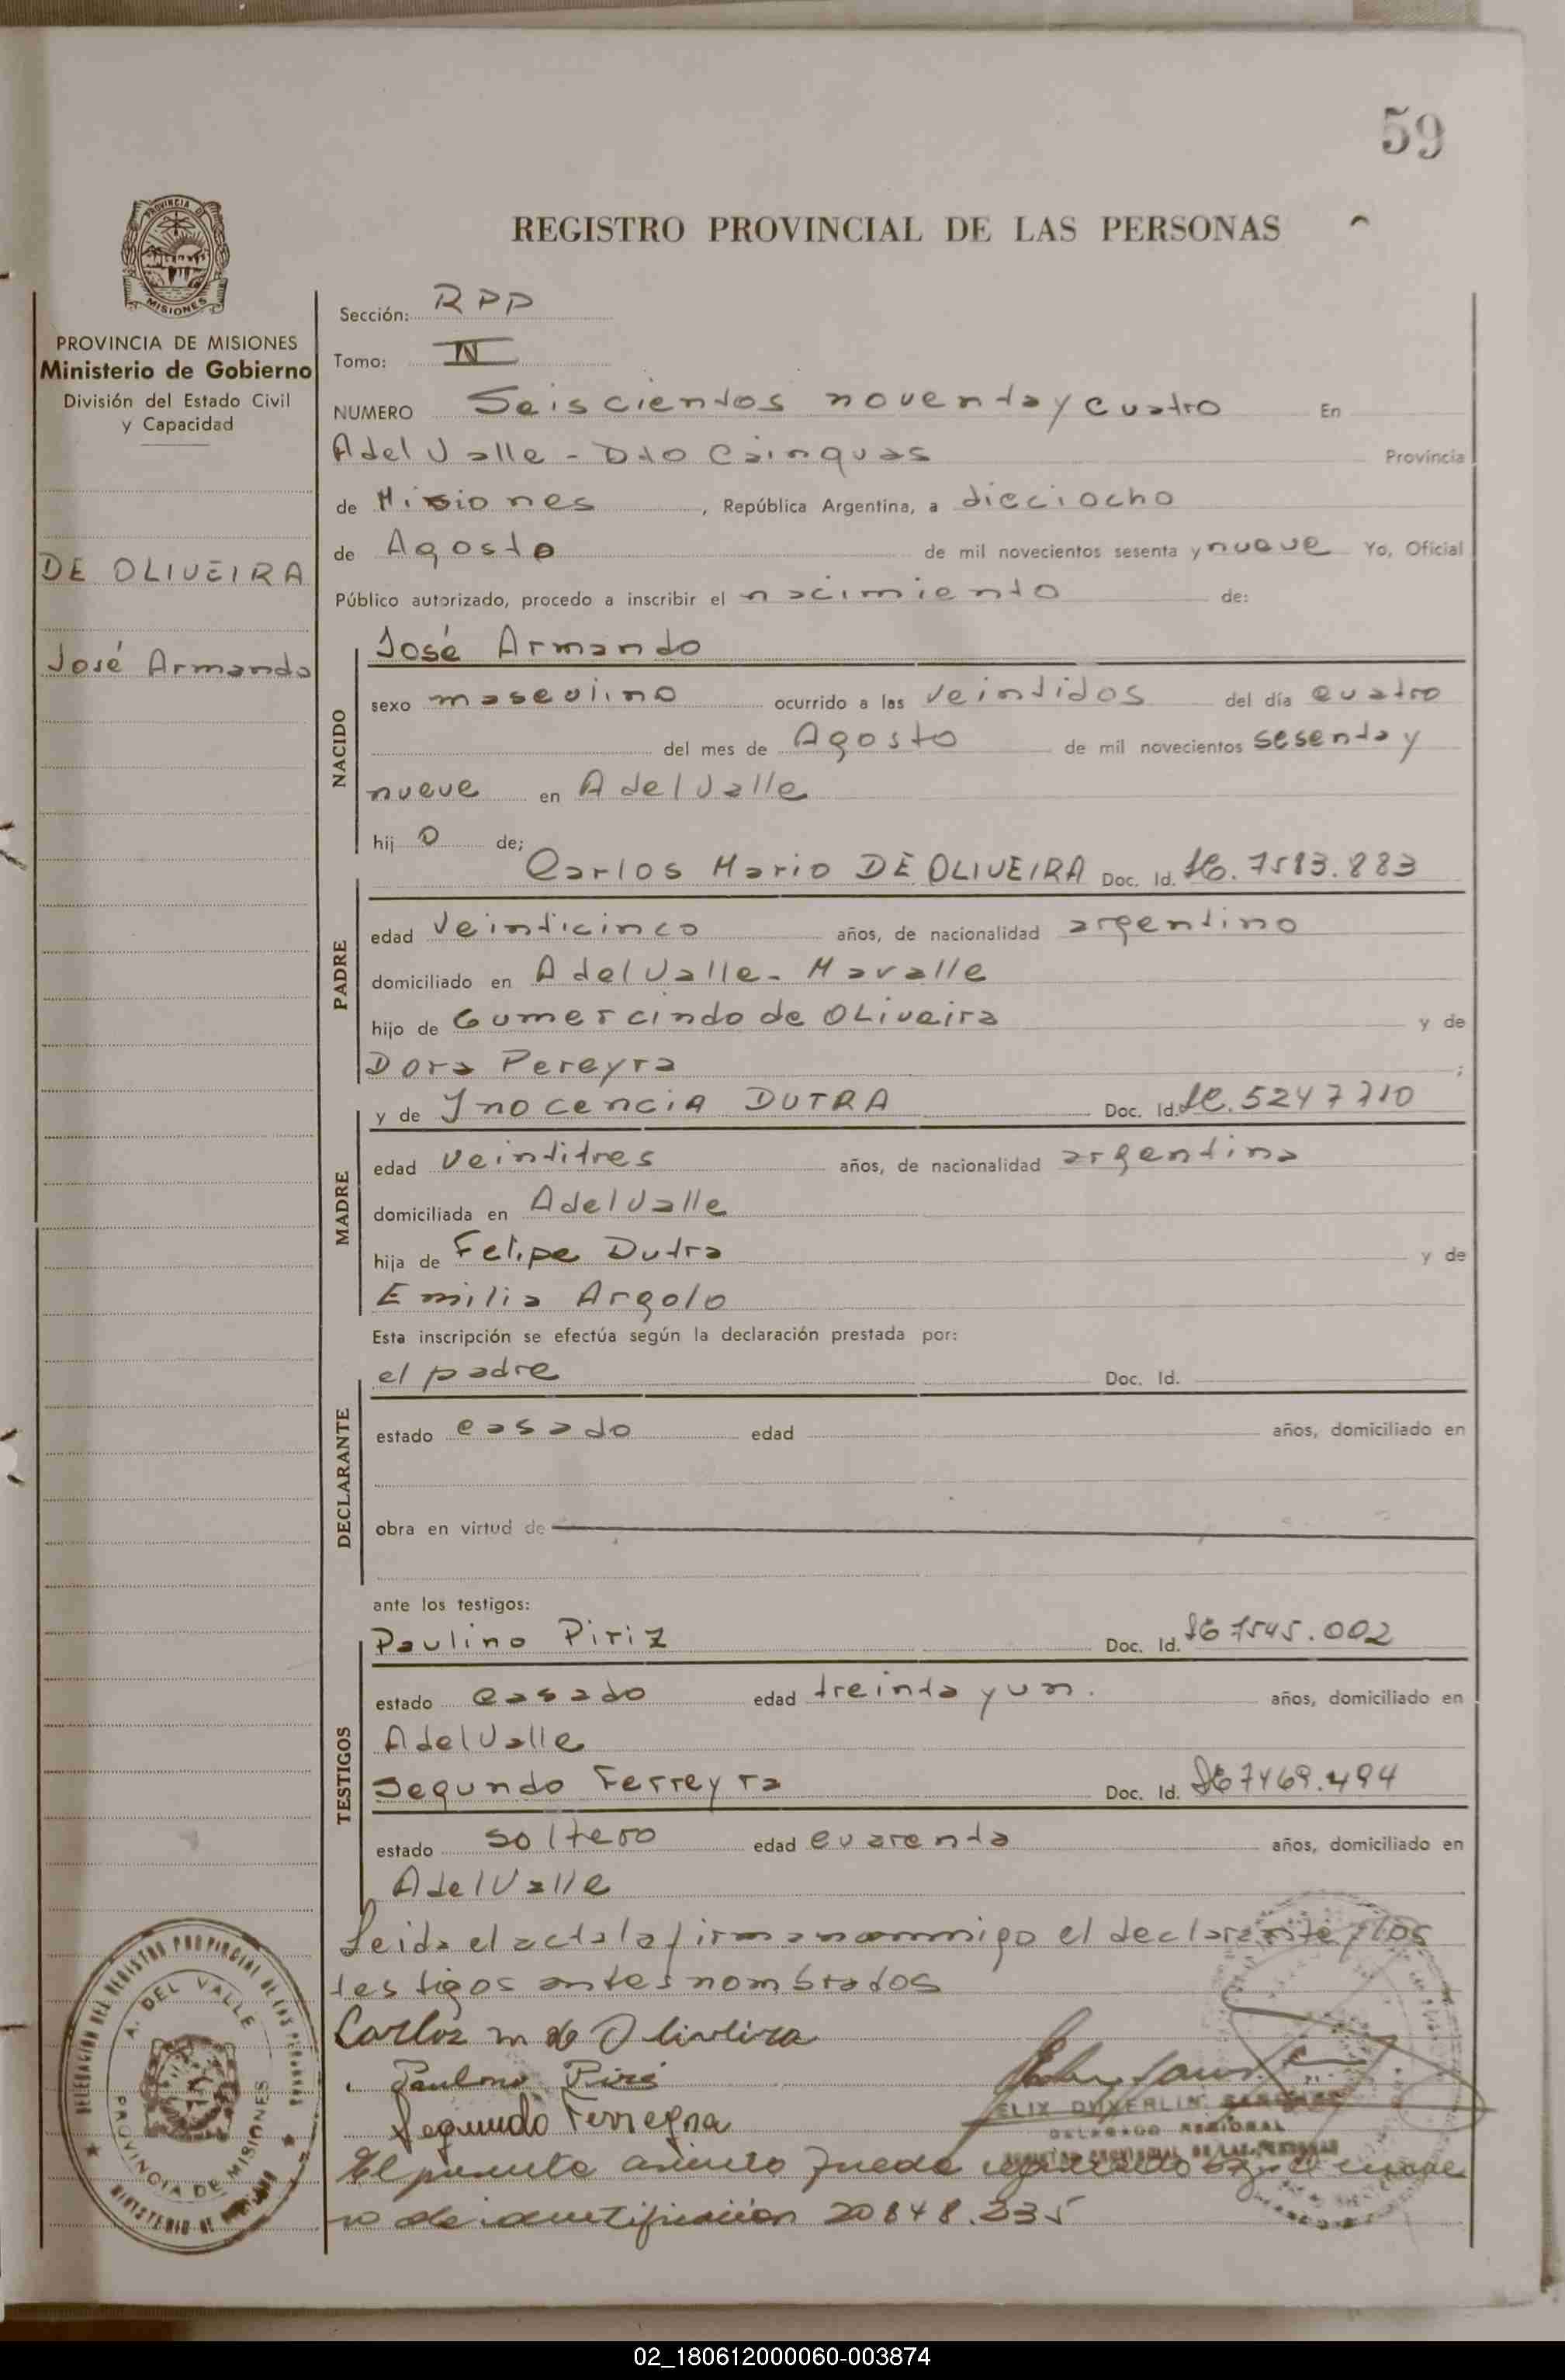 59
REGISTRO PROVINCIAL DE LAS PERSONAS
PROVINCIA DE
MISIONES
PROVINCIA DE MISIONES
Ministerio de Gobierno
División del Estado Civil
y Capacidad
DE OLIVEIRA
José Armando
Sección: RPP
Tomo: IV
NUMERO Seiscientos noventa y cuatro En
A del Valle - Dto Cainguas Provincia
de Misiones, República Argentina, a dieciocho
de Agosto de mil novecientos sesenta y nueve Yo, Oficial
Público autorizado, procedo a inscribir el nacimiento de:
NACIDO
José Armando
sexo masculino ocurrido a las veintidos del día cuatro
del mes de Agosto de mil novecientos sesenta y
nueve en A del Valle
hijo de;
PADRE
Carlos Mario DE OLIVEIRA Doc. Id. 7583.883
edad veinticinco años, de nacionalidad argentino
domiciliado en A del Valle - Mavalle
hijo de Gumercindo de Oliveira y de
Dora Pereyra ;
MADRE
y de Inocencia DUTRA Doc. Id. LC. 5247710
edad veintitres años, de nacionalidad argentina
domiciliada en A del Valle
hija de Felipe Dutra y de
Emilia Argolo
Esta inscripción se efectúa según la declaración prestada por:
DECLARANTE
el padre Doc. Id.
estado casado edad años, domiciliado en
obra en virtud de
ante los testigos:
TESTIGOS
Paulino Piriz Doc. Id. 7545.002
estado casado edad treinta y un. años, domiciliado en
A del Valle
Segundo Ferreyra Doc. Id. 7469.494
estado soltero edad cuarenta años, domiciliado en
A del Valle
Leida el acta la firman conmigo el declarante y los
testigos antes nombrados
Carlos m de Oliveira
Paulino Piris
Segundo Ferreyra
DELEGADO REGIONAL
REGISTRO PROVINCIAL DE LAS PERSONAS
El presente asiento queda registrado bajo el nume
ro de identificación 20848.235
DELEGACION DEL REGISTRO PROVINCIAL DE LAS PERSONAS
A. DEL VALLE
PROVINCIA DE MISIONES
MINISTERIO DE GOBIERNO
02_180612000060-003874